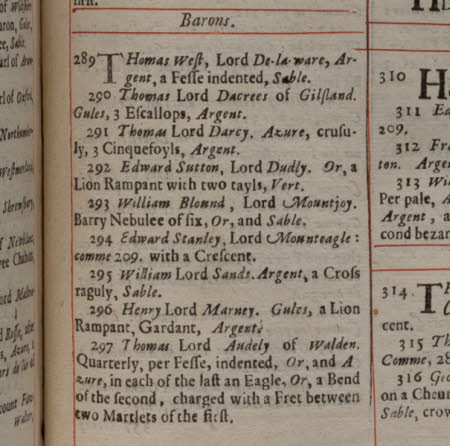 of Wiltſhire
aron, Gules,
ee, Sable.
arl of Arun
rl of Oxford,
Northumber-
Weſtmerland,
Shrewſbury,
Barons.
289 THomas Weſt, Lord De-la-ware, Ar-
gent, a Feſſe indented, Sable.
290 Thomas Lord Dacrees of Gilſland.
Gules, 3 Eſcallops, Argent.
291 Thomas Lord Darcy. Azure, cruſu-
ly, 3 Cinquefoyls, Argent.
292 Edward Sutton, Lord Dudly. Or, a
Lion Rampant with two tayls, Vert.
293 William Blound, Lord Mountjoy.
Barry Nebulee of ſix, Or, and Sable.
294 Edward Stanley, Lord Mounteagle:
comme 209. with a Creſcent.
295 William Lord Sands. Argent, a Croſs
raguly, Sable.
296 Henry Lord Marney. Gules, a Lion
Rampant, Gardant, Argent.
297 Thomas Lord Audely of Walden.
Quarterly, per Feſſe, indented, Or, and A
zure, in each of the laſt an Eagle, Or, a Bend
of the ſecond, charged with a Fret between
two Martlets of the firſt.
310
311
209.
312
ton. Argent
313
Per pale,
Argent, a
cond bezan
314
cent.
315
Comme, 28
316
on a Cheu
Sable, crow